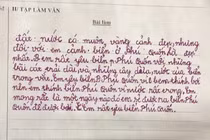 TẬP LÀM VĂN
Bài làm
đất nước có muôn vàng cảnh đẹp, nhưng
đối với em cảnh biển ở Phú Quốn là đẹp
nhất. Em rất yêu biển Phú Quốn với, những
bãi cát trải dài, và những cây dừa, nước của biển
trong vắt. Em yêu biển Phú Quốn
nên em thích biển Phú Quốn vì nước rất trong, Em
mong rằng là một ngày nào đó em sẽ được ra biển Phú
Quốn để được bơi. Em rất yêu biển Phú Quốn.